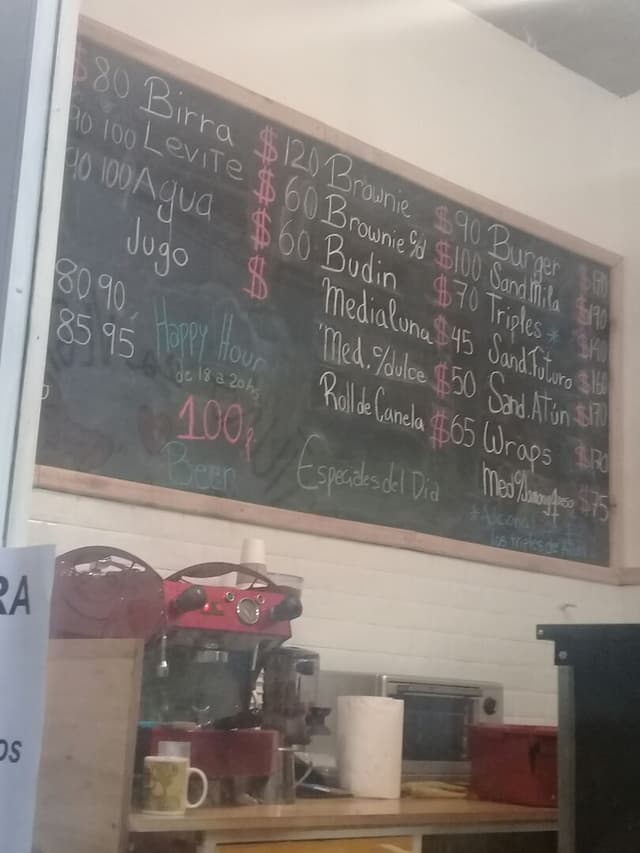 $ 80 Birra $ 120 Brownie $ 90 Burger $
90 100 Levite $ 60 Brownie c/d $ 100 Sand. Mila $ 190
90 100 Agua $ 60 Budin $ 70 Triples * $
Jugo $ Medialuna $ 45 Sand. Futuro $ 160
80 90 Happy Hour Med. c/dulce $ 50 Sand. Atún $ 170
85 95 de 18 a 20 hs Roll de Canela $ 65 Wraps $
100 Especiales del Dia Med $ 75
Beer
RA
OS